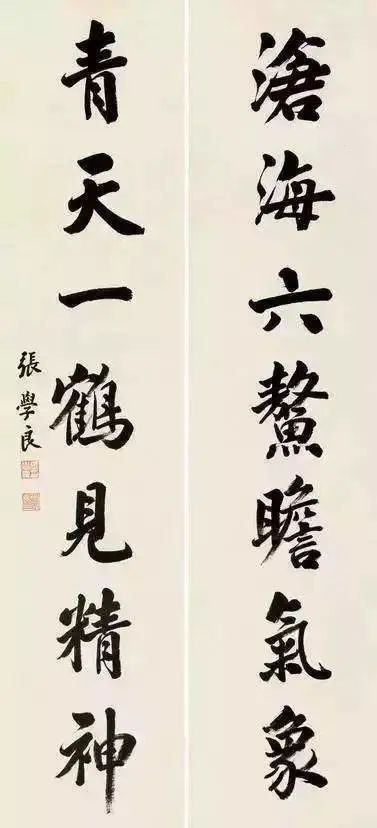 滄海六鰲瞻氣象
青天一鶴見精神
張學良